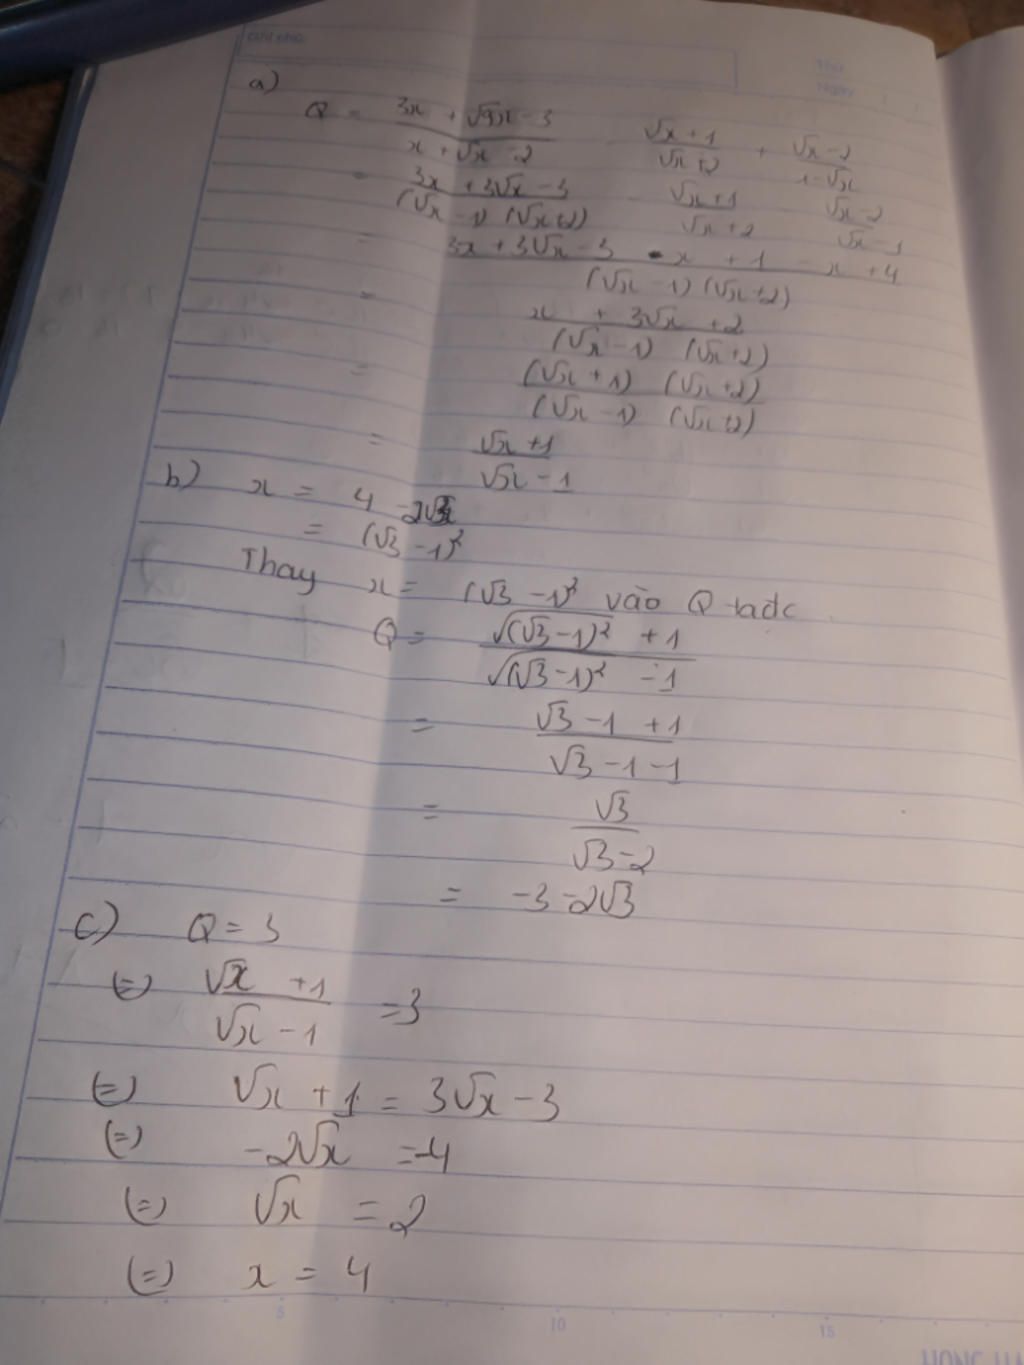 Ghi chú
Thứ
Ngày
a)
Q = (3x + √9x - 3)/(x + √x - 2) - (√x + 1)/(√x + 2) + (√x - 2)/(1 - √x)
= (3x + 3√x - 3)/((√x - 1)(√x + 2)) - (√x + 1)/(√x + 2) - (√x - 2)/(√x - 1)
= (3x + 3√x - 3 - x + 1 - x + 4)/((√x - 1)(√x + 2))
= (x + 3√x + 2)/((√x - 1)(√x + 2))
= ((√x + 1)(√x + 2))/((√x - 1)(√x + 2))
= (√x + 1)/(√x - 1)
b) x = 4 - 2√3
= (√3 - 1)²
Thay x = (√3 - 1)² vào Q tađc
Q = (√(√3 - 1)² + 1)/(√(√3 - 1)² - 1)
= (√3 - 1 + 1)/(√3 - 1 - 1)
= √3/(√3 - 2)
= -3 - 2√3
c) Q = 3
(=) (√x + 1)/(√x - 1) = 3
(=) √x + 1 = 3√x - 3
(=) -2√x = -4
(=) √x = 2
(=) x = 4
5 10 15